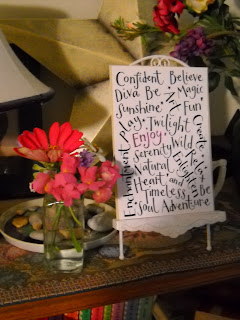 Confident Believe
Diva Be Magic
Sunshine Art Fun
Play Twilight
Enjoy
Serenity Wild
Natural
Heart and
Timeless Be
Soul Adventure
Enchantment
Create
Relax
Enlighten